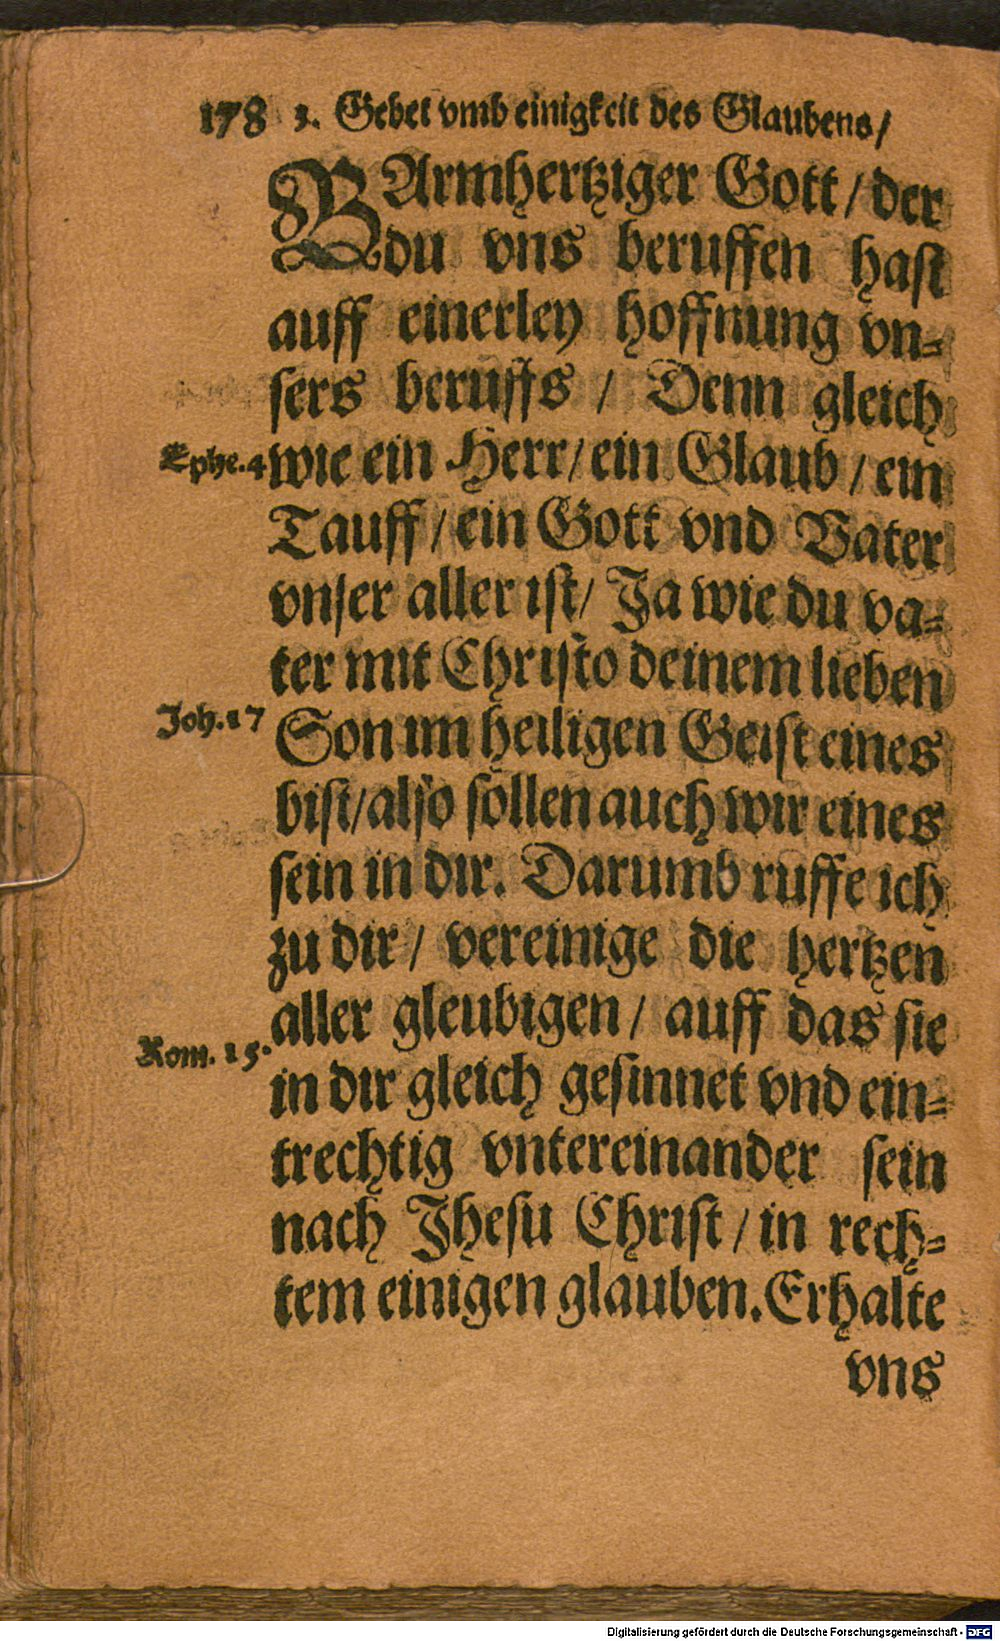 178 3. Gebet vmb einigkeit des Glaubens/
BArmhertziger Gott / der
du vns beruffen hast
auff einerley hoffnung vn=
sers beruffs / Denn gleich
Ephe.4 wie ein Herr/ ein Glaub / ein
Tauff / ein Gott vnd Vater
vnser aller ist/ Ja wie du va=
ter mit Christo deinem lieben
Joh.17 Son im heiligen Geist eines
bist/also sollen auch wir eines
sein in dir. Darumb ruffe ich
zu dir / vereinige die hertzen
aller gleubigen / auff das sie
Rom. 15. in dir gleich gesinnet vnd ein=
trechtig vntereinander sein
nach Jhesu Christ / in rech=
tem einigen glauben. Erhalte
vns
Digitalisierung gefördert durch die Deutsche Forschungsgemeinschaft - DFG